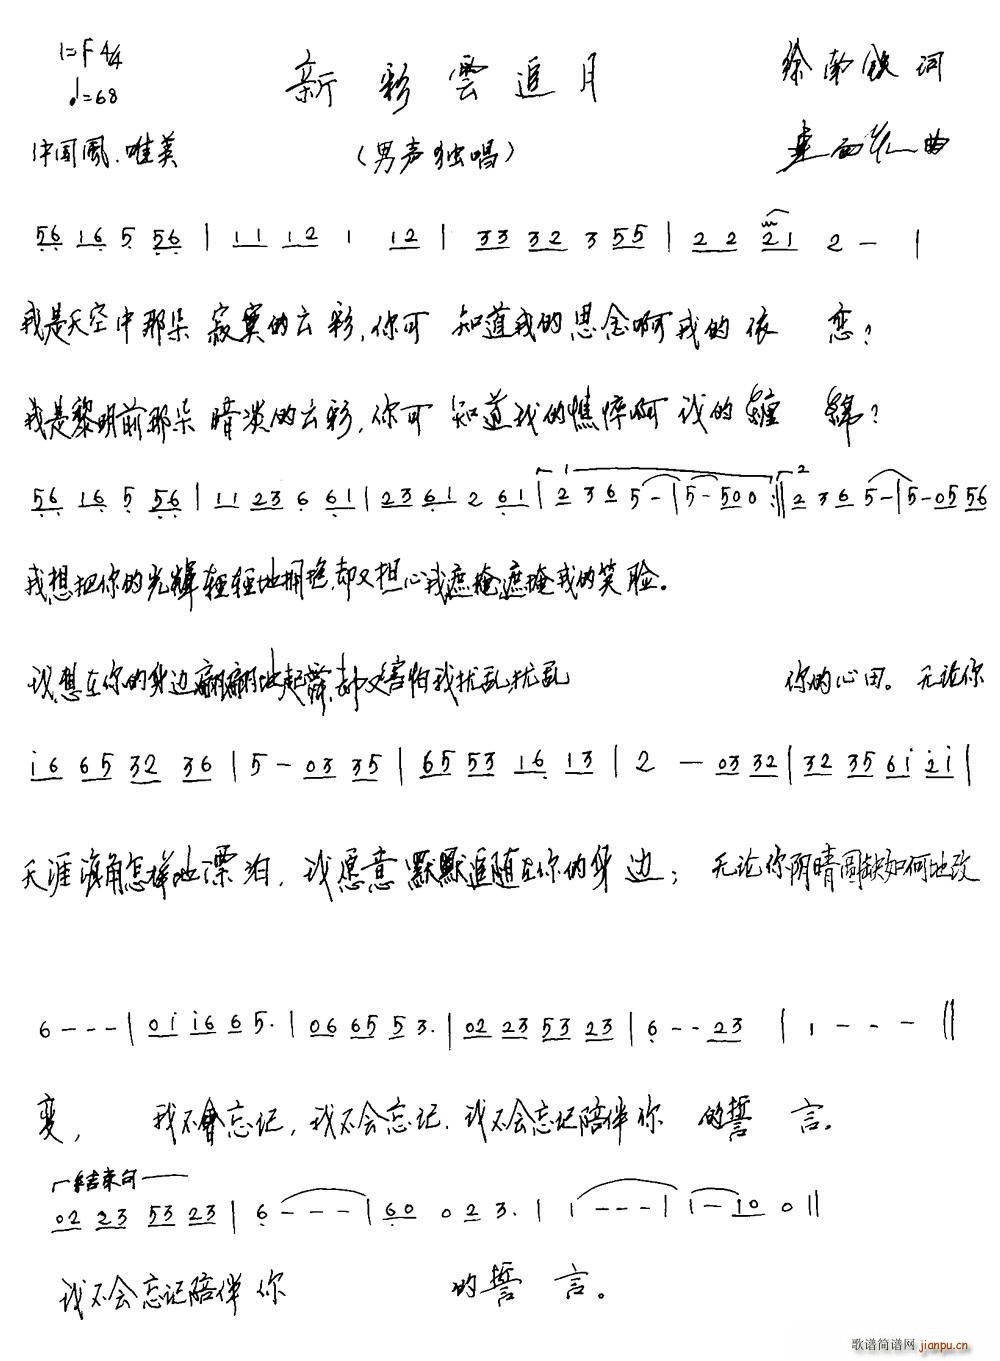 1=F 4/4
♩=68
新彩雲追月
徐南铁 词
中国風.唯美
(男声独唱)
曲
56 16 5 56 | 11 12 1 12 | 33 32 3 55 | 22 21 2 — |
我是天空中那朵 寂寞的云彩,你可 知道我的思念啊我的依 恋?
我是黎明前那朵 暗淡的云彩,你可 知道我的憔悴啊 我的缠 绵?
56 16 5 56 | 11 23 6 61 | 23 61 2 61 | 1 2 3 6 5 - | 5 - 500 :|| 2 2 3 6 5 - | 5 - 05 56
我想把你的光輝轻轻地拥抱,却又担心我遮掩遮掩我的笑脸。
我想在你的身边翩翩地起舞,却又害怕我扰乱扰乱 你的心田。无论你
i6 65 32 36 | 5 - 03 35 | 65 53 16 13 | 2 — 03 32 | 32 35 6i 2i |
天涯海角怎样地漂泊,我愿意默默追随在你的身边; 无论你阴晴圆缺如何地改
6 - - - | 0i i6 6 5. | 06 65 5 3. | 02 23 53 23 | 6 - - 23 | 1 - - - ||
变, 我不會忘记,我不会忘记.我不会忘记陪伴你 的誓 言。
结束句
02 23 53 23 | 6 - - - | 60 0 2 3. | 1 - - - | 1 — 10 0 ||
我不会忘记陪伴你 的誓 言。
歌谱简谱网 jianpu.cn